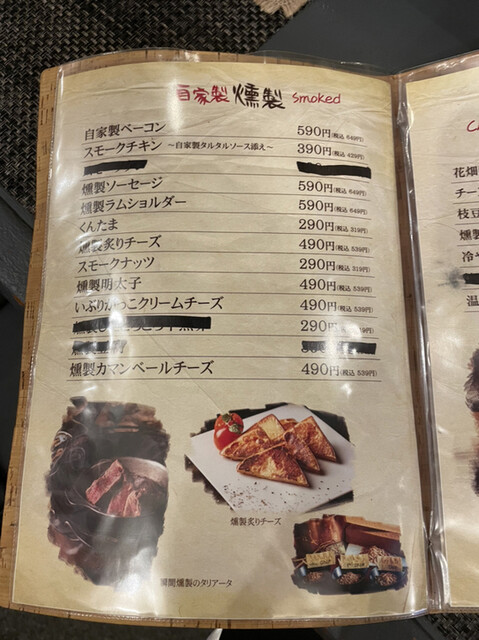 自家製 燻製 Smoked
自家製ベーコン 590円(税込 649円)
スモークチキン ～自家製タルタルソース添え～ 390円(税込 429円)
燻製ソーセージ 590円(税込 649円)
燻製ラムショルダー 590円(税込 649円)
くんたま 290円(税込 319円)
燻製炙りチーズ 490円(税込 539円)
スモークナッツ 290円(税込 319円)
燻製明太子 490円(税込 539円)
いぶりがっこクリームチーズ 490円(税込 539円)
290円(税込 319円)
燻製カマンベールチーズ 490円(税込 539円)
燻製炙りチーズ
瞬間燻製のタリアータ
花畑
チー
枝豆
燻製
冷や
温